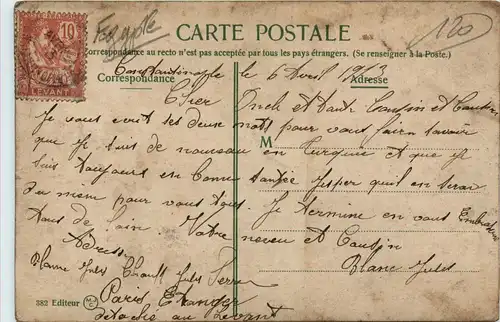 CARTE POSTALE
Correspondance au recto n'est pas acceptée par tous les pays étrangers. (Se renseigner à la Poste.)
Correspondance
Adresse
10
LEVANT
120
Constantinople le 6 Avril
Cher Oncle et tante Cousin et
Je vous écrit les deux mots pour vous faire savoir
M
que je suis de nouveau en Turquie et que je
suis toujours en bonne santée J'esper quil en serai
du meme pour vous tous. Je termine en vous Embrassan
tous de loin. Votre neveu et Cousin
Adress
Blanc Jules
Blanc Jules Chauff
Paris Etranger
détaché au Levant
382 Editeur